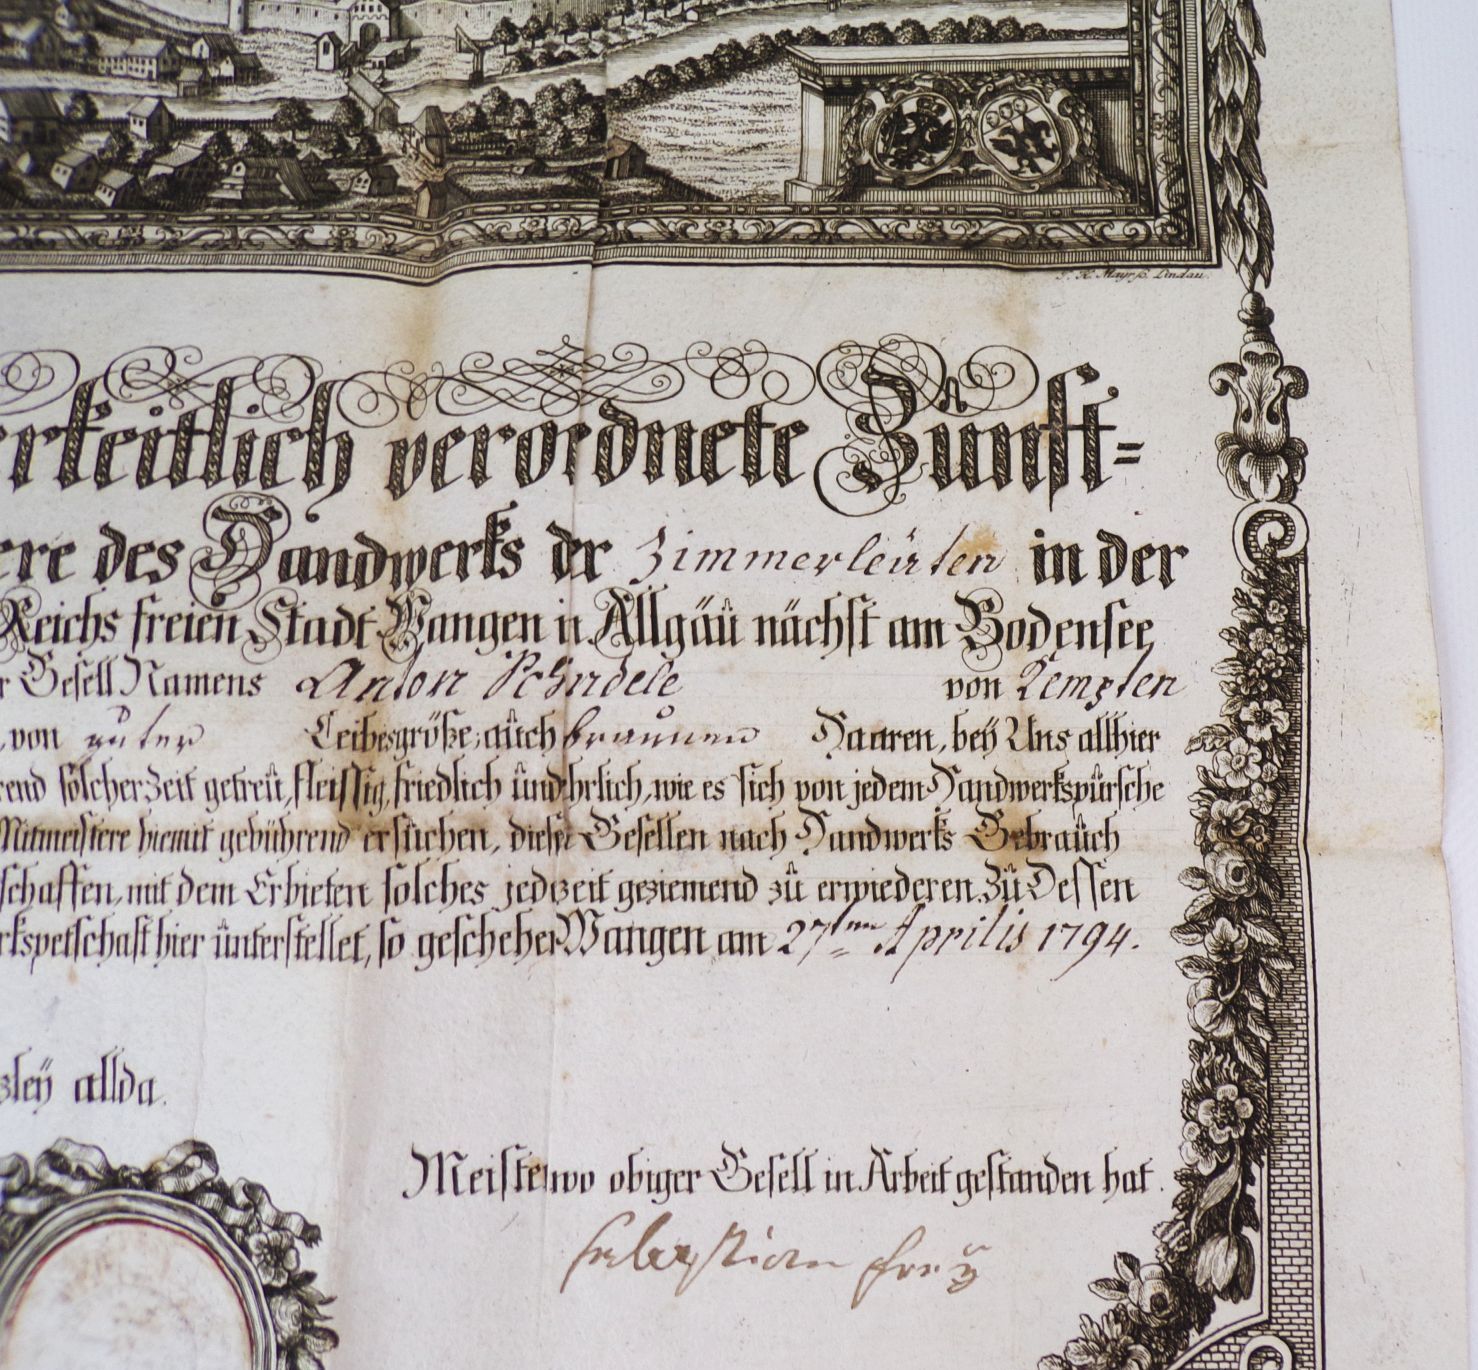 J. H. Mayr sc. Lindau.
rkeitlich verordnete Zünft=
ere des Handwerks der Zimmerleüten in der
Reichs freien Stadt Wangen in Allgäü nächst am Bodensee,
r Gesell Namens Anton Schndele von Kempten
, von guter Leibesgröße, aüch braunen Haaren, beÿ Uns allhier
rend solcher Zeit getreü, fleissig, friedlich ünd ehrlich, wie es sich von jedem Handwerkspürsche
Mitmeistere hiemit gebührend ersüchen, diesen Gesellen nach Handwerks Gebraüch
schaffen, mit dem Erbieten solches jederzeit geziemend zü erwiederen. Zü Dessen
rkspetschaft hier ünterstellet, so geschehen Wangen am 27ten Aprilis 1794.
zleÿ allda.
Meister wo obiger Gesell in Arbeit gestanden hat.
sebastian freÿ